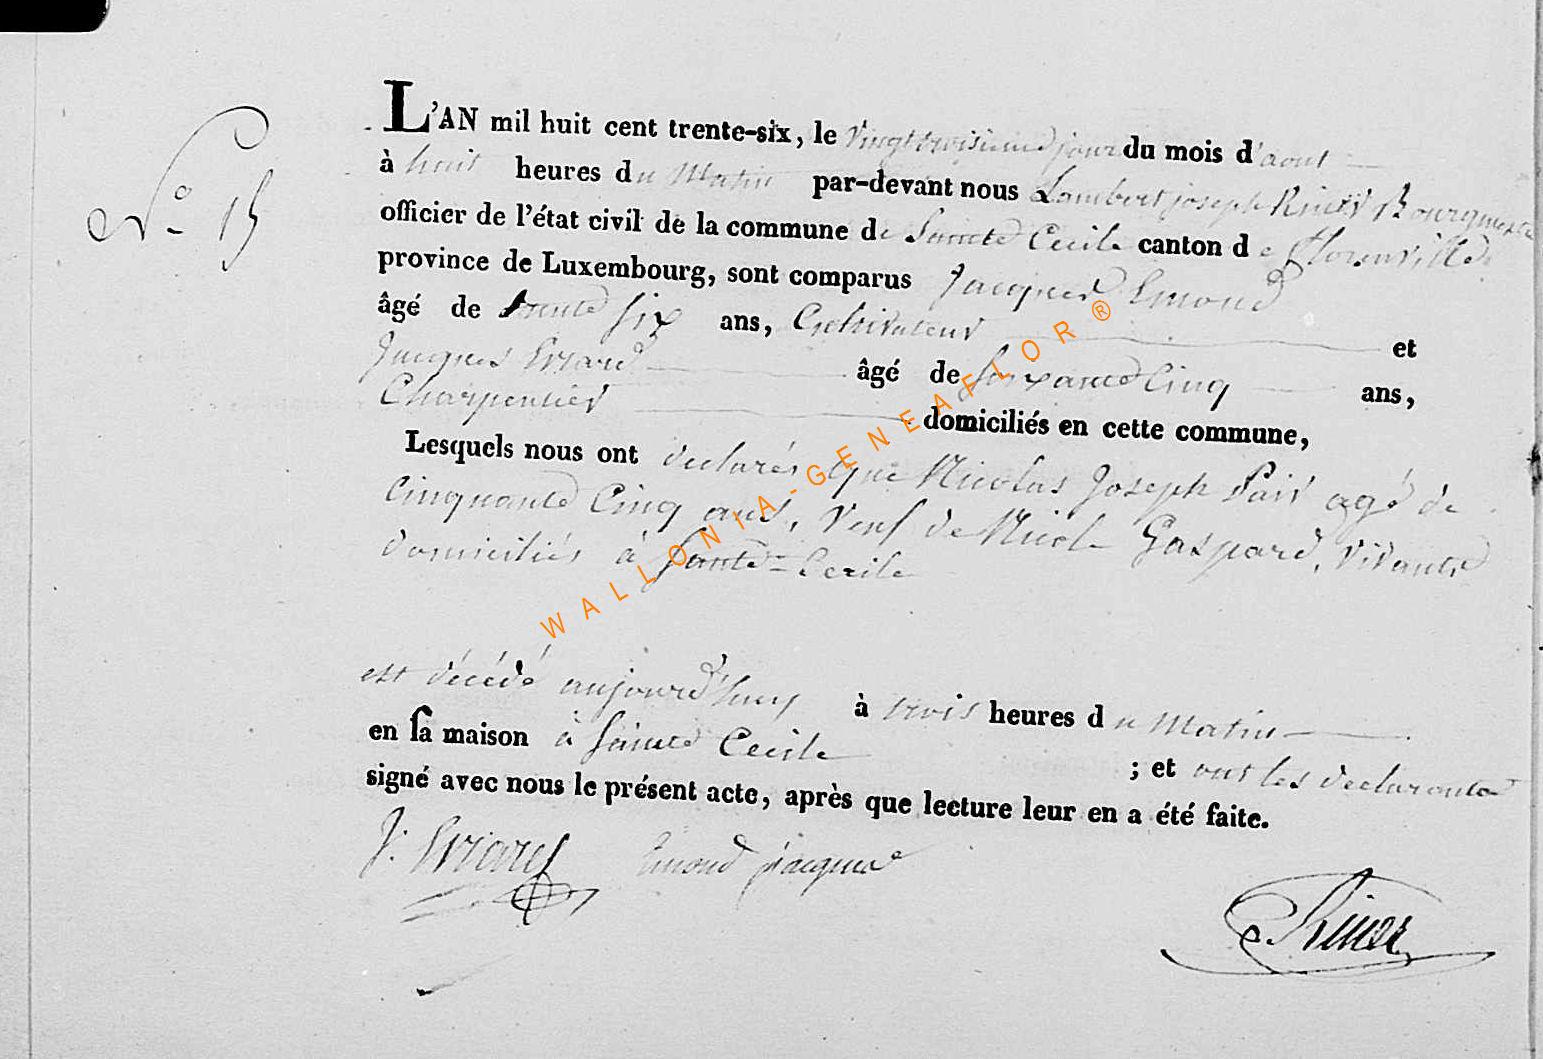 N° 15
L'AN mil huit cent trente-six, le vingt troisieme jour du mois d'aout
à huit heures du Matin par-devant nous Lambert joseph Bourgmestre
officier de l'état civil de la commune de Sainte Cecile canton de florenville
province de Luxembourg, sont comparus Jacques Emond
âgé de trente six ans, Cultivateur et
Jacques Evrard âgé de soixante Cinq ans,
Charpentier domiciliés en cette commune,
Lesquels nous ont declarés que Nicolas Joseph agé de
Cinquante Cinq ans, veuf de Nicole Gaspard, vivante
domiciliés à Sante-Cecile
est décédé aujourd'huy à trois heures du Matin
en sa maison à Sainte Cecile ; et ont les declarants
signé avec nous le présent acte, après que lecture leur en a été faite.
J. Evrard Emond jacque
WALLONIA-GENEAFLOR®